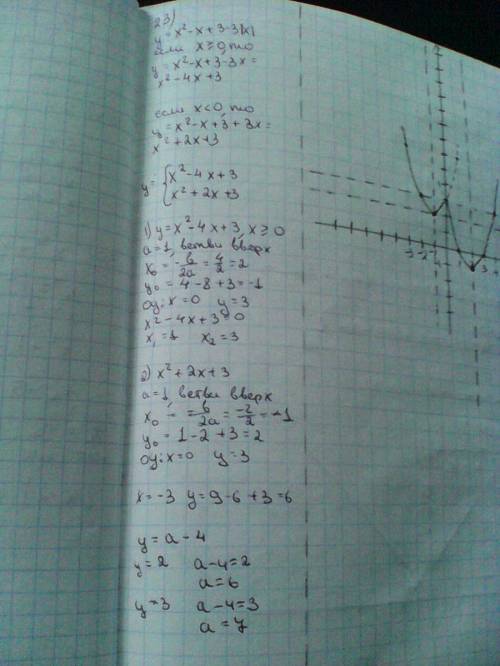 23)
y = x² - x + 3 - 3|x|
если x ≥ 0, то
y = x² - x + 3 - 3x =
x² - 4x + 3
если x < 0, то
y = x² - x + 3 + 3x =
x² + 2x + 3
y = { x² - 4x + 3
x² + 2x + 3
1) y = x² - 4x + 3, x ≥ 0
a = 1, ветви вверх
x₀ = -b/2a = 4/2 = 2
y₀ = 4 - 8 + 3 = -1
Oy: x = 0 y = 3
x² - 4x + 3 = 0
x₁ = 1 x₂ = 3
2) x² + 2x + 3
a = 1, ветви вверх
x₀ = -b/2a = -2/2 = -1
y₀ = 1 - 2 + 3 = 2
Oy: x = 0 y = 3
x = -3 y = 9 - 6 + 3 = 6
y = a - 4
y = 2 a - 4 = 2
a = 6
y = 3 a - 4 = 3
a = 7